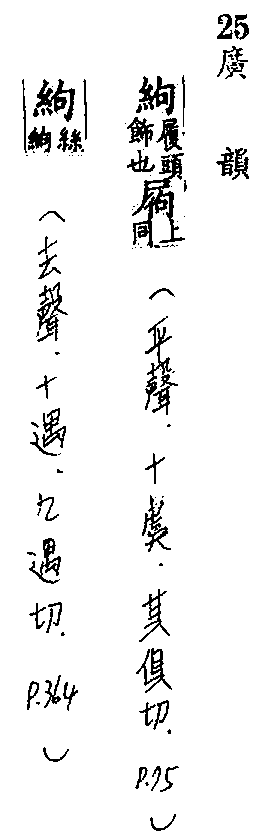 25廣韻
絇履頭飾也𡲘同上（平聲．十虞．其俱切．P.75）
絇絲絇（去聲．十遇．九遇切．P.364）